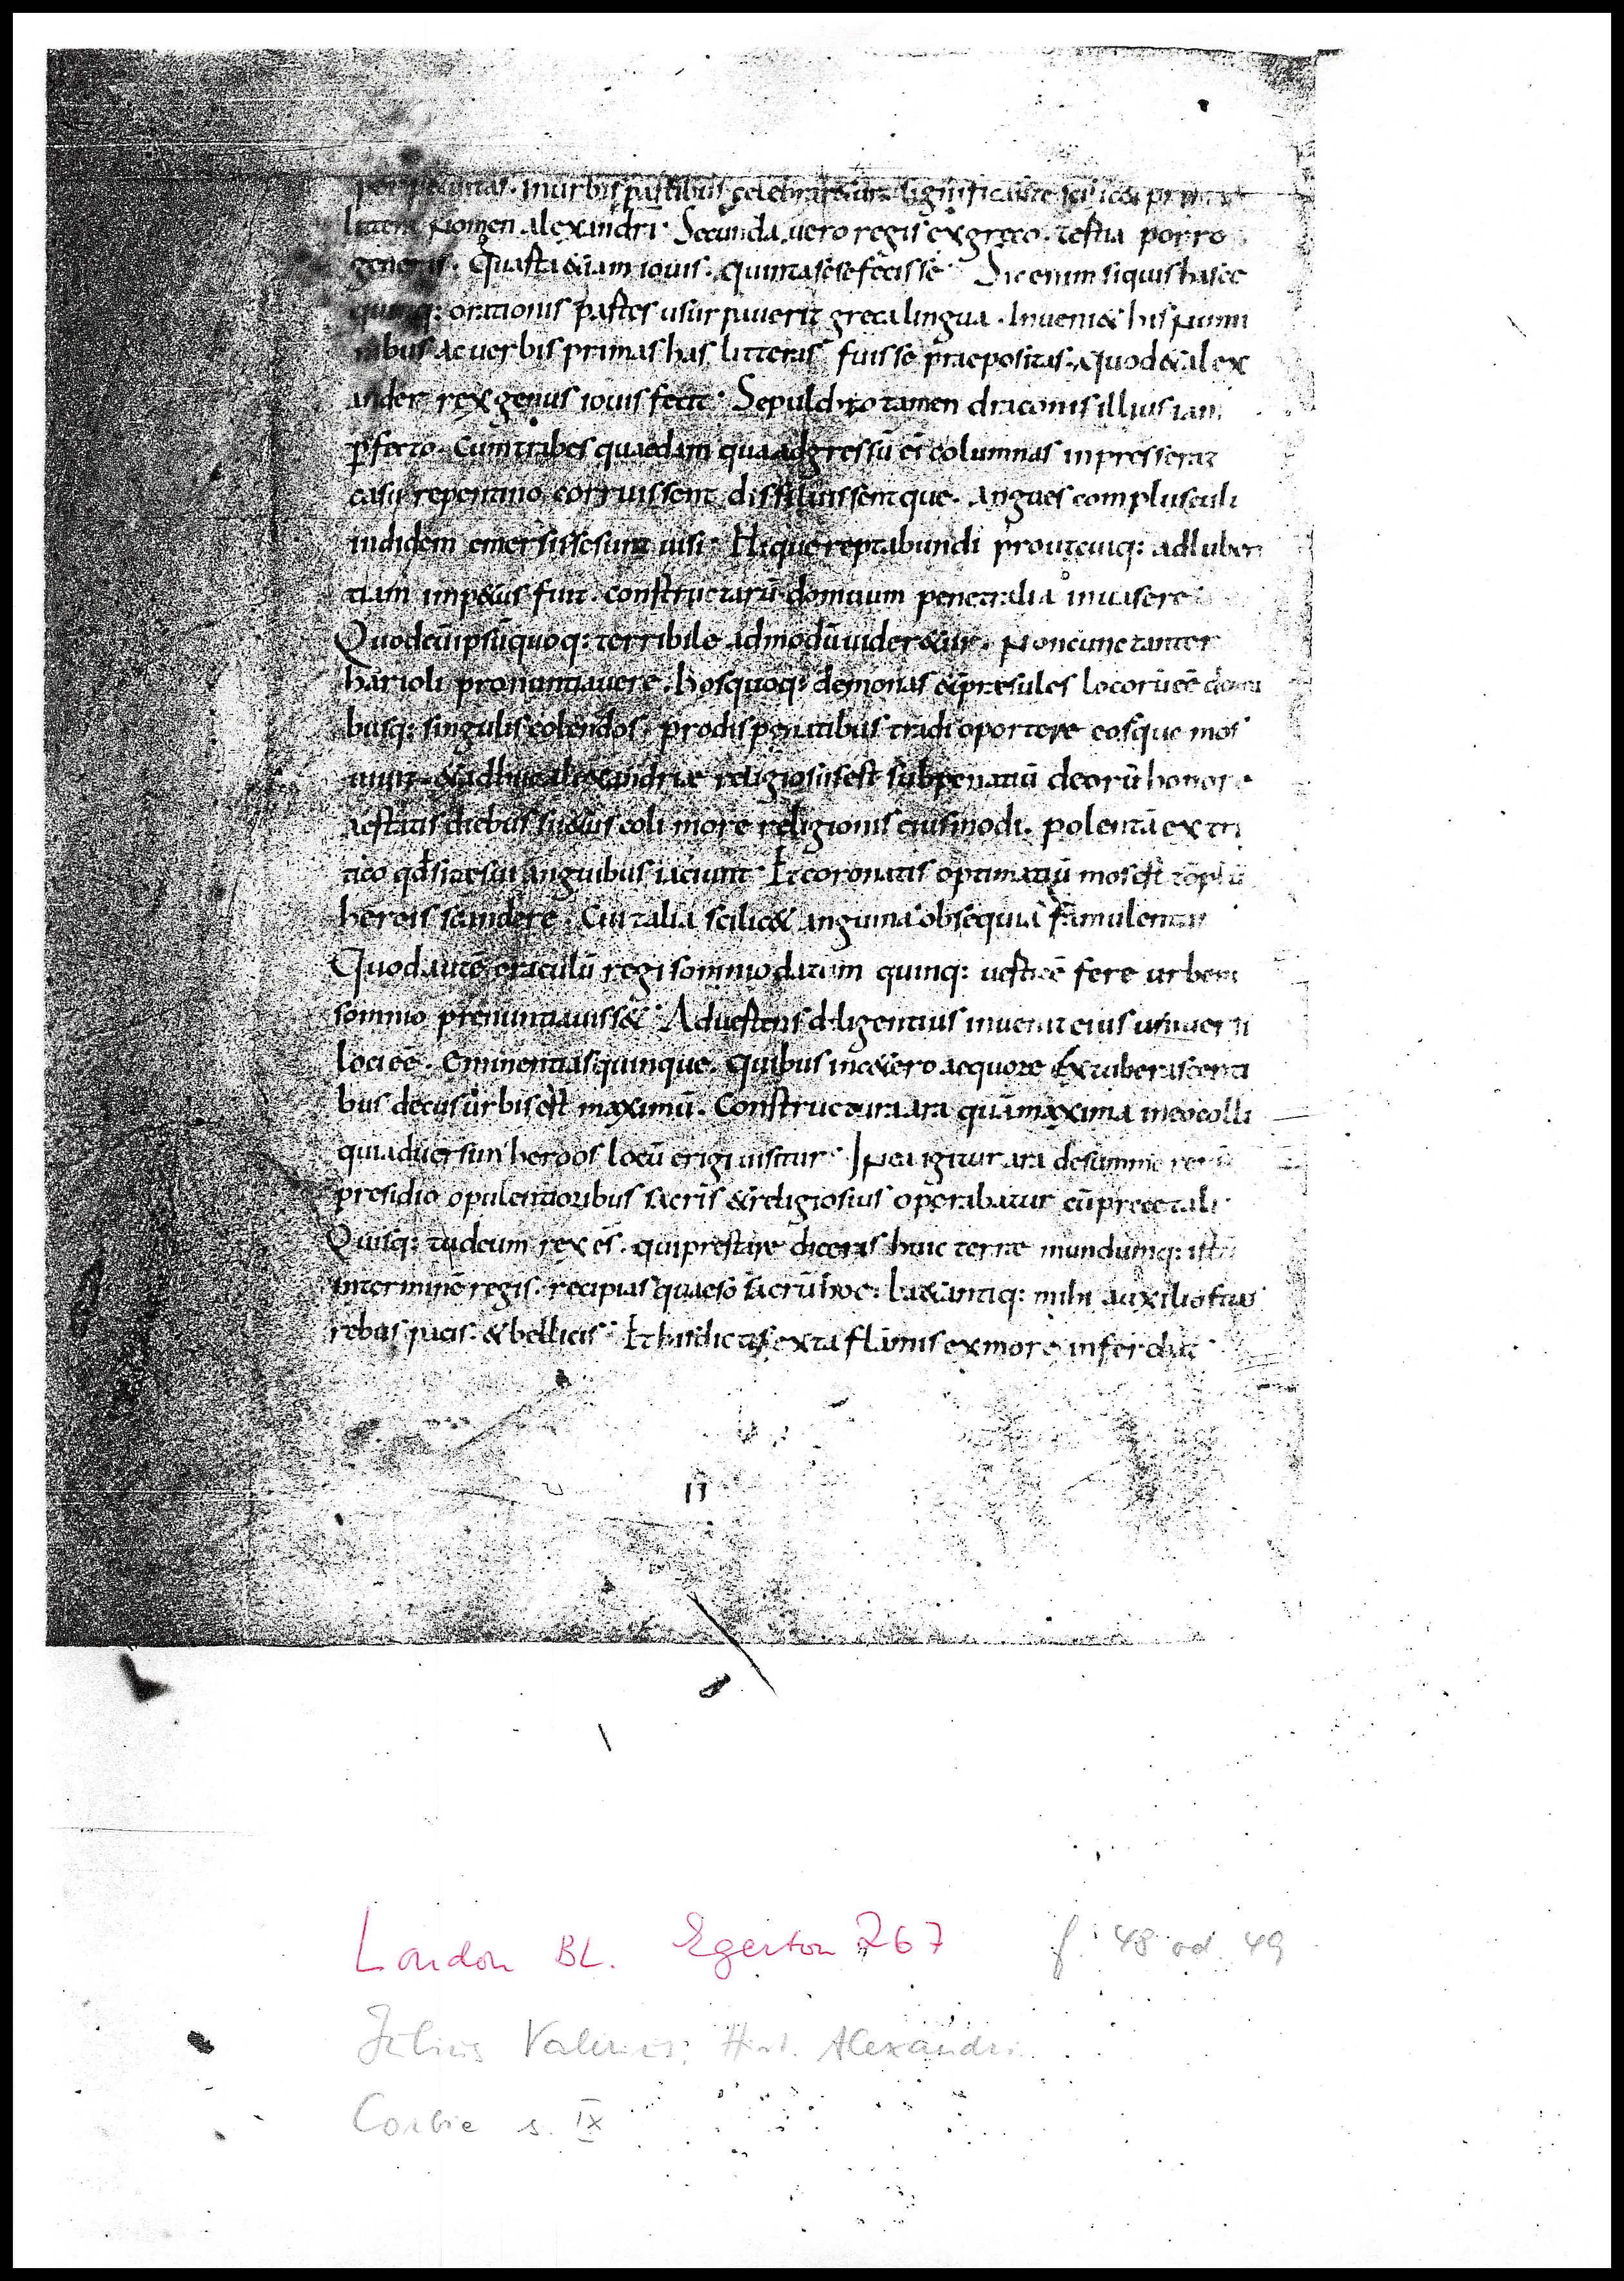 perpetuitas. Inurbis partibus celebraretur. significante scilicet prima
littera Nomen alexandri. Secunda uero regis ex greco. tertia porro
generis. Quarta &iam iouis. quinta sese fecisse. Sic enim siquis hasce
quinq: orationis partes usurpauerit greca lingua. Inueni& his Nomi
nibus ac uerbis primas has litteras fuisse praepositas. Quod & alex
ander rex genus iouis fecit. Sepulchro tamen draconis illius iam
pfecto. Cum trabes quaedam qua adgressū eī columnas inpresserat
casu repentino corruissent dissiluissentque. angues complusculi
indidem emersisse sunt uisi. Hique reptabundi prout cuiq: adluben
tiam imp&us fuit. constructarū domuum penetralia inuasere
Quod cū ipsū quoq: terribile admodū uider&ur. Noncunctanter
harioli pronuntiauere. hos quoq: demonas & presules locorū eē domi
busq: singulis colendos. pro dis penatibus tradi oportere eosque mos
uiuit & adhuc alexandriae religiosus est sub penatiū deorū honore
aestatis diebus suetus coli more religionis eiusmodi. polentā ex tri
tico qd siet esui anguibus iaciunt. Et coronatis optimatiū mos est tēplū
herois scandere. Cui talia scilic& anguina obsequia famulentur
Quod autē oraculū regi somnio datum quinq: uesticē fere urbem
somnio prenuntiauiss& Aduertens diligentius inuenit eius uniuersi
loci eē. Eminentias quinque. quibus inc&ero aequore Extuberascenti
bus decus urbis est maximū. Constructura ara quā maxima in eo colli
qui aduersum heroos locū erigi uisitur. In ea igitur ara de summe rerū
presidio opulentioribus sacris & religiosius operabatur cū prece tali
Quisq: tu deum rex es. qui prestare diceris huic terrae mundumq: istū
interminē regis. recipias quaeso sacrū hoc. la&antiq: mihi auxilio fuas
rebus pacis. & bellicis. Et his dictis exta flāmis ex more inferciuit
II
London BL. Egerton 267 f. 48 od. 49
Julius Valerius, Hist. Alexandri
Corbie s. IX